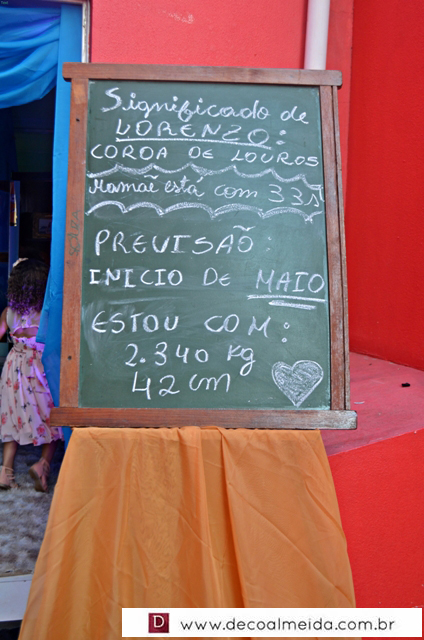 Significado de
LORENZO:
COROA DE LOUROS
Mamãe está com 33s
PREVISÃO:
INICIO DE MAIO
ESTOU COM:
2.340 kg
42 cm
D www.decoalmeida.com.br